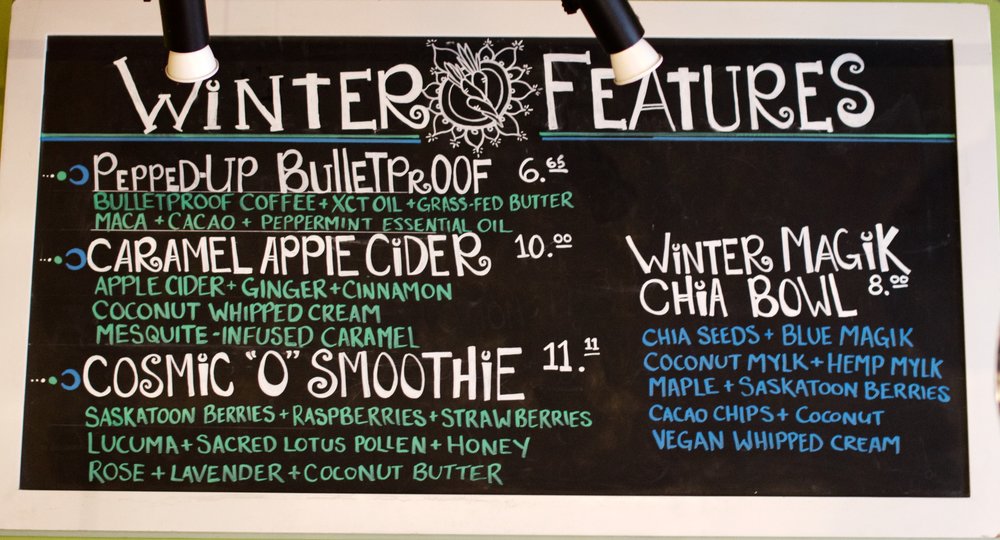 WINTER FEATURES
PEPPED-UP BULLETPROOF 6.65
BULLETPROOF COFFEE + XCT OIL + GRASS-FED BUTTER
MACA + CACAO + PEPPERMINT ESSENTIAL OIL
CARAMEL APPLE CIDER 10.00
APPLE CIDER + GINGER + CINNAMON
COCONUT WHIPPED CREAM
MESQUITE-INFUSED CARAMEL
COSMIC "O" SMOOTHIE 11.11
SASKATOON BERRIES + RASPBERRIES + STRAWBERRIES
LUCUMA + SACRED LOTUS POLLEN + HONEY
ROSE + LAVENDER + COCONUT BUTTER
WINTER MAGIK
CHIA BOWL 8.00
CHIA SEEDS + BLUE MAGIK
COCONUT MYLK + HEMP MYLK
MAPLE + SASKATOON BERRIES
CACAO CHIPS + COCONUT
VEGAN WHIPPED CREAM